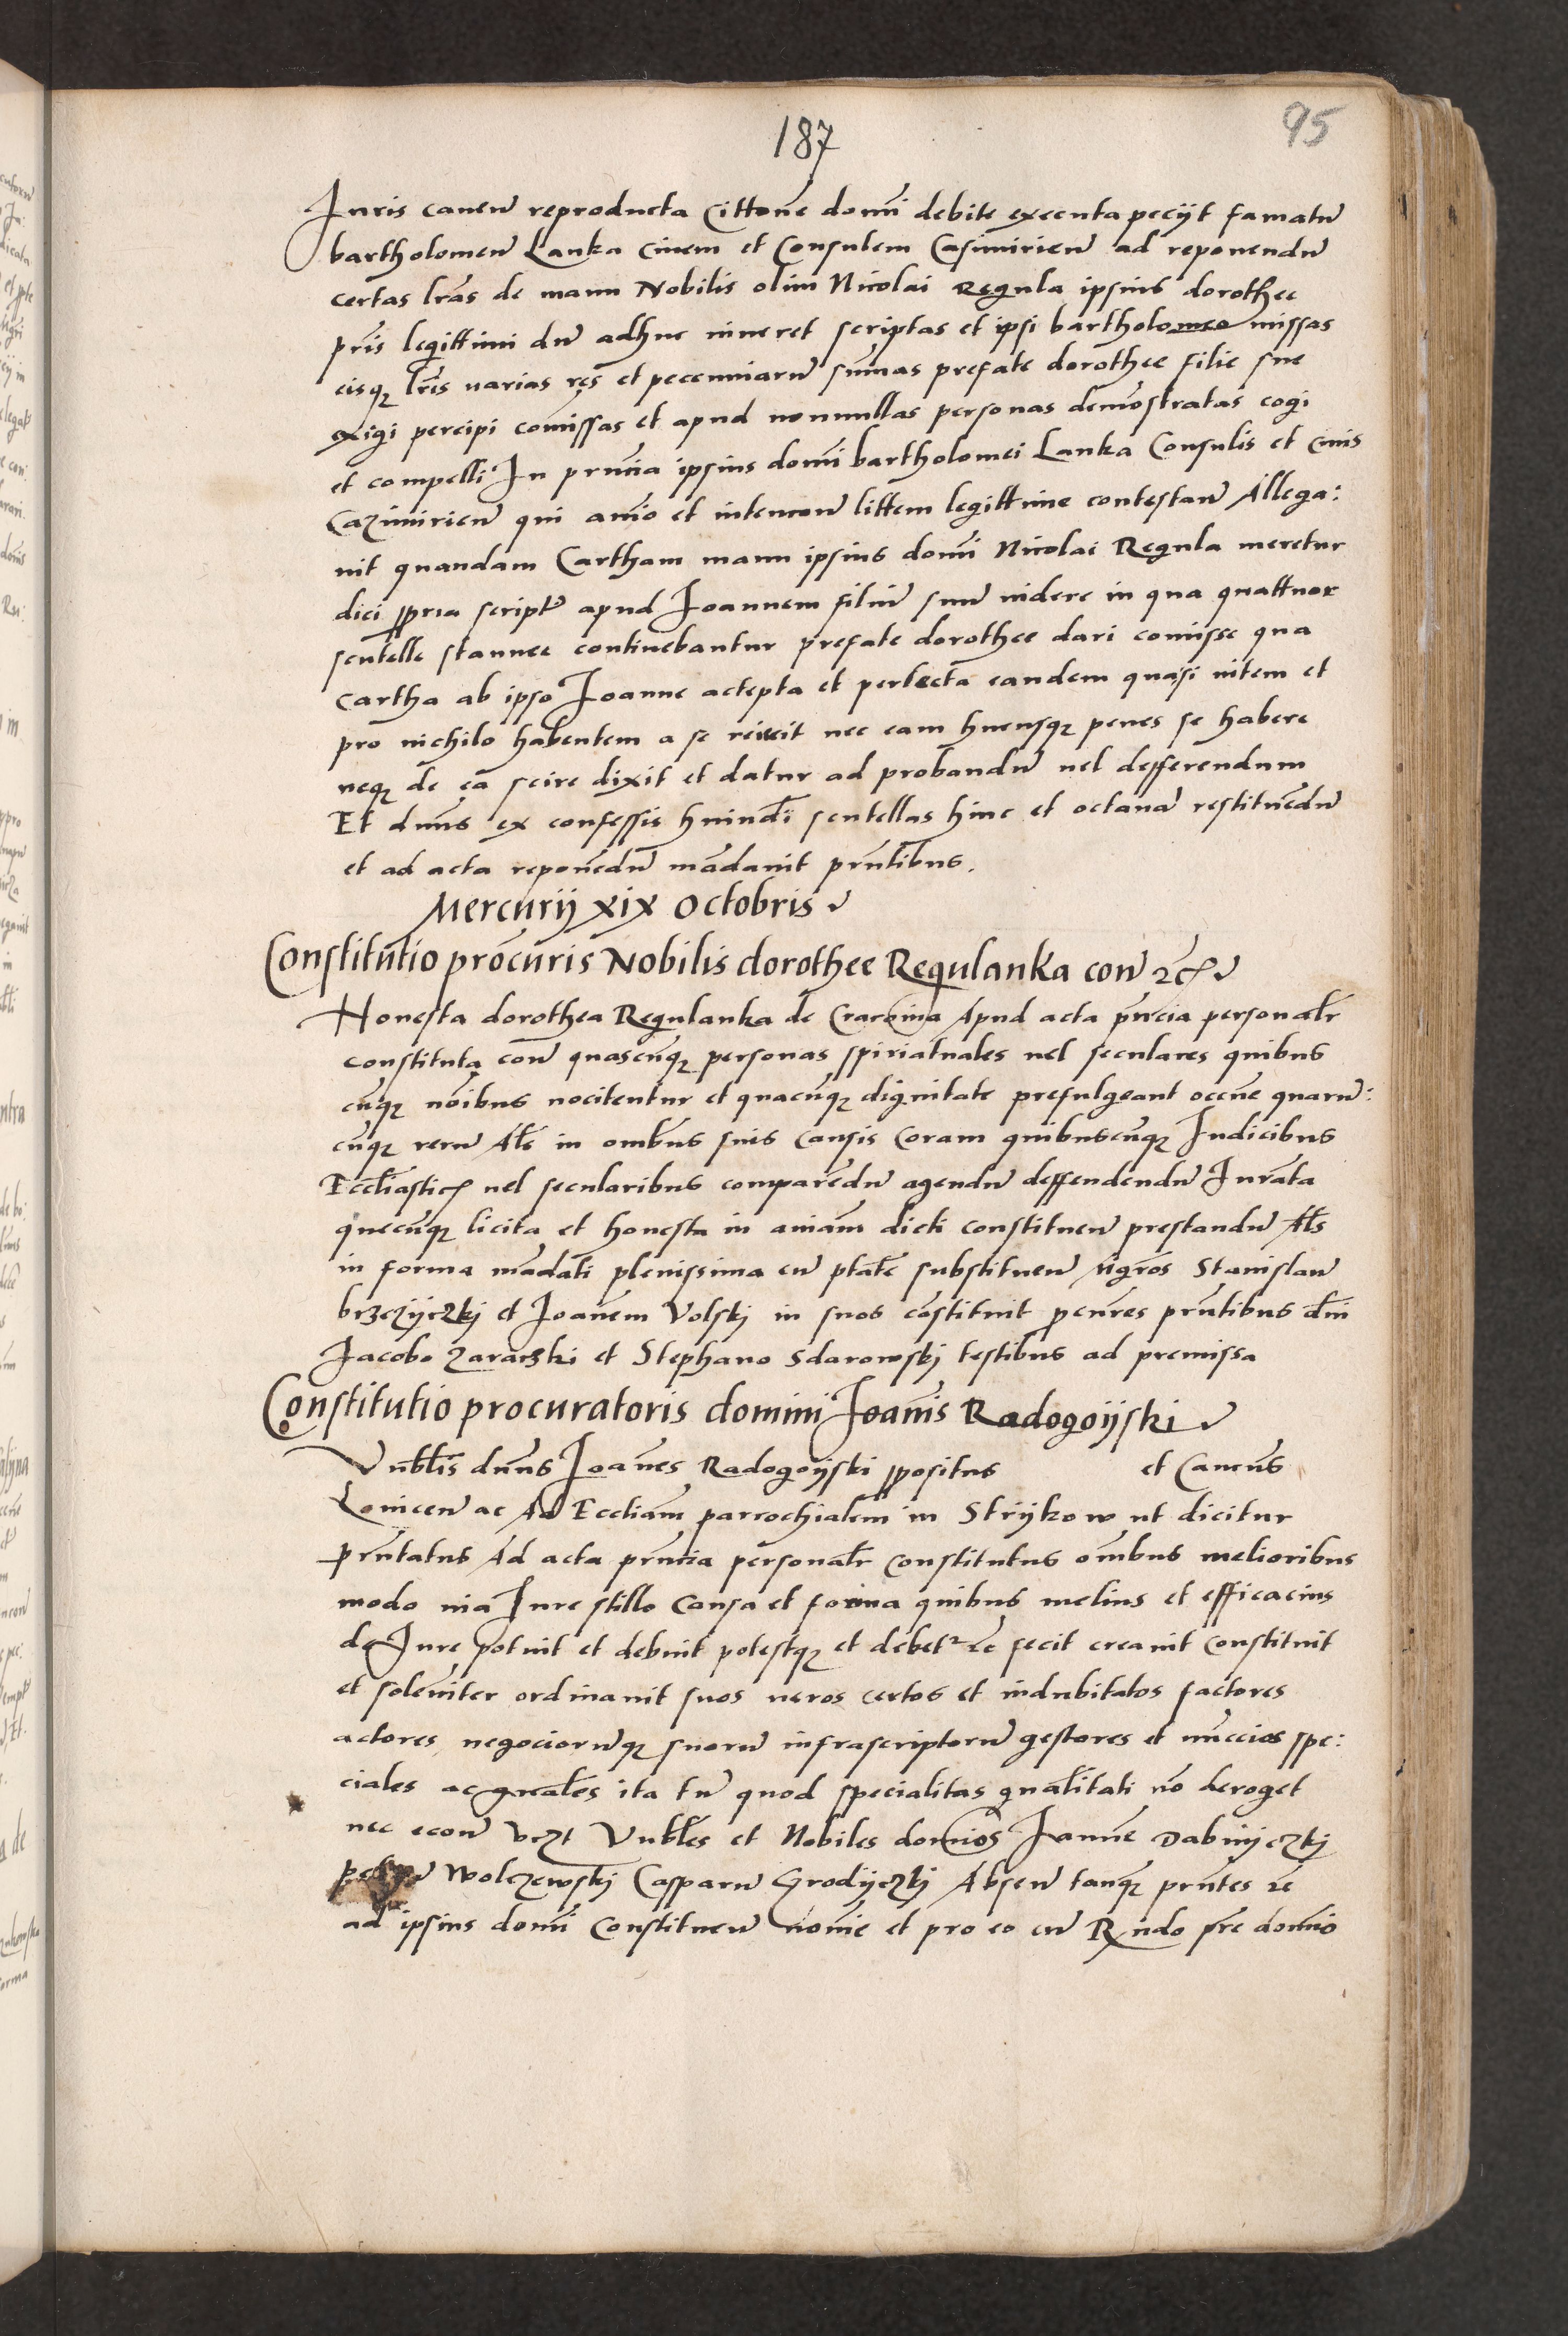 187
95
Iuris cauen̄ reproducta Citt̄one dom̄i debite executa peciit famatū
bartholomeū Lanka Ciuem et Consulem Casimirien̄ ad reponendū
certas lr̄as de manu Nobilis olim Nicolai Regula ipsius dorothee
pr̄is legittimi dū adhuc uiueret scriptas et ipsi bartholomeo missas
eisqȝ lr̄is uarias res et pecuniarū sum̄as prefate dorothee filie sue
exigi percipi com̄issas et apud nonnullas personas demōstratas cogi
et compelli In prn̄cia ipsius dom̄i bartholomei Lanka Consulis et Ciuis
Cazimirien̄ qui anīo et intencon̄ littem legittime contestan̄ Allega:
uit quandam Cartham manu ipsius dom̄i Nicolai Regula meretur
dici ꝓpria script̄ apud Ioannem filiū suū uidere in qua quattuor
scutelle stannee continebantur prefate dorothee dari com̄isse qua
Cartha ab ipso Ioanne accepta et perlecta eandem quasi uitem et
pro nichilo habentem a se reiecit nec eam hucusqȝ penes se habere
neqȝ de ea scire dixit et datur ad probandū uel defferendum
Et dn̄us ex confessis huiusdi scutellas hinc et octauā restituēdū
et ad acta reponēdū mādauit prn̄tibus.
Mercurij xix Octobris
Constitutio procuris Nobilis dorothee Regulanka con̄ zc̄
Honesta dorothea Regulanka de Cracouia Apud acta prn̄cia personalr̄
constituta con̄ quascūqȝ personas spiriatuales uel seculares quibus
cūqȝ nōibus uocitentur et quacūqȝ dignitate prefulgeant occn̄e quarū:
cūqȝ rerū Als̄ in omb̄us suis Causis Coram quibuscūqȝ Iudicibus
Eccl̄iastic̄ uel secularibus comparēdū agendū deffendendū Iurāta
quecūqȝ licita et honesta in aniām dicti constituen̄ prestandū Als̄
in forma mādati plenissima cū ptāte substituen̄ Mgr̄os Stanislaū
brzezijczkj et Ioanēm Volskj in suos cōstituit ꝓcur̄es prn̄tibus dn̄i
Iacobo Zararzki et Stephano Sdarowskj testibus ad premissa
Constitutio procuratoris domini Ioanīs Radogoijski
Vnbl̄is dn̄us Ioanēs Radogoijski ꝓpositus et Can̄cus
Louicen̄ ac Ad Eccl̄iam parrochialem in Strijkow ut dicitur
prn̄tatus Ad acta prn̄cia personalr̄ constitutus omb̄us melioribus
modo uia Iure stillo Causa et forma quibus melius et efficacius
de Iure potuit et debuit potestqȝ et debet zc̄ fecit creauit constituit
et solen̄iter ordinauit suos ueros certos et indubitatos factores
actores negociorūqȝ suorū infrascriptorū gestores et nūccios spe:
ciales ac gn̄ales ita tn̄ quod specialitas gn̄alitati nō deroget
nec econ̄ vczt Vnbl̄es et Nobiles domīos Ianūe Dabinijczkj
petrū Wolczewskj Casparū Grodijczkj Absen̄ tanqȝ prn̄tes zc̄
ad ipsius dom̄i Constituen̄ nom̄ie et pro eo cū Rn̄do pr̄e domīo